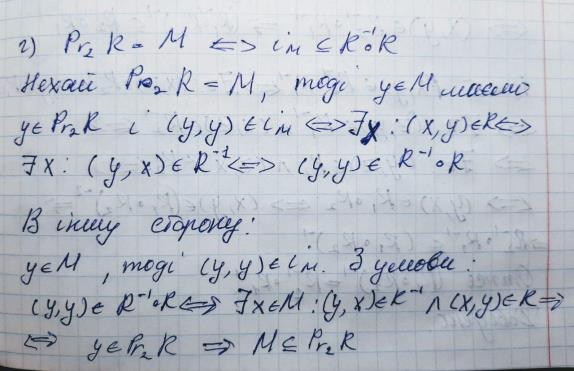 г) Pr₂ R = M ⟺ i_M ⊆ R⁻¹∘R
Нехай Pr₂ R = M, тоді y∈M маємо
y∈Pr₂R і (y,y) ∈ i_M ⟺ ∃x : (x,y)∈R ⟺
∃x : (y,x)∈R⁻¹ ⟺ (y,y)∈ R⁻¹∘R
В іншу сторону:
y∈M, тоді (y,y)∈i_M. З умови:
(y,y)∈ R⁻¹∘R ⟺ ∃x∈M : (y,x)∈R⁻¹ ∧ (x,y)∈R ⟹
⟺ y∈Pr₂R ⟹ M⊆Pr₂R